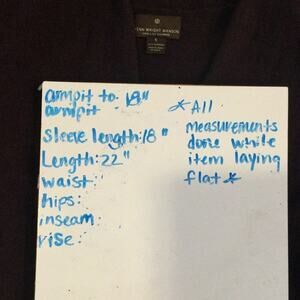 ANN WRIGHT MANSON
S
armpit to 19"
armpit
Sleeve length: 18"
Length: 22"
waist:
hips:
inseam:
rise:
*All
measurements
done while
item laying
flat*